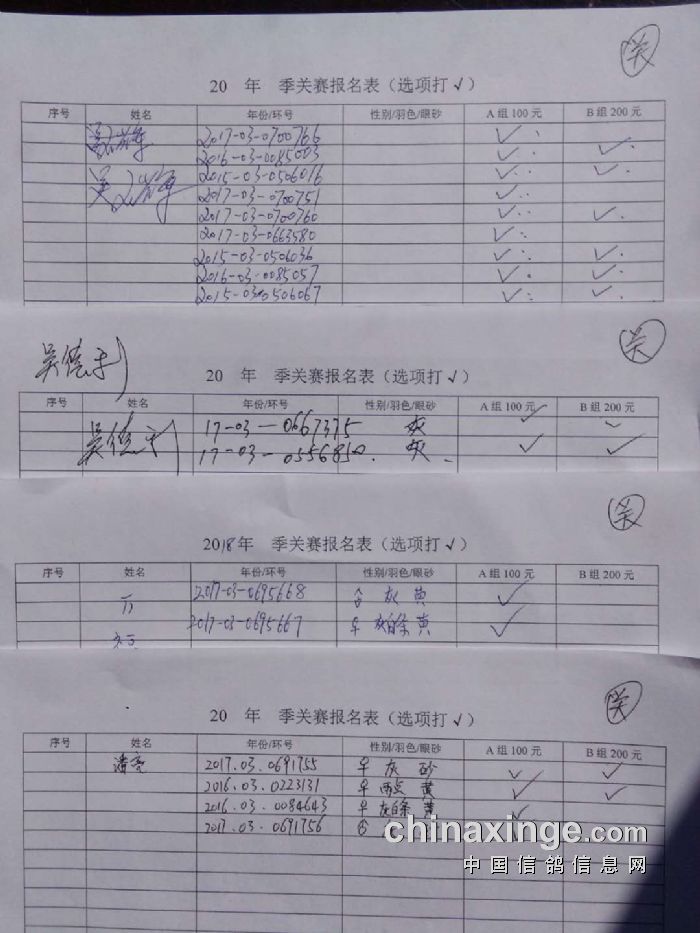 关
20 年 季关赛报名表（选项打√）
序号 姓名 年份/环号 性别/羽色/眼砂 A组100元 B组200元
2017-03-0700766 √
2016-03-0085003 √ √
2015-03-0506016 √ √
2017-03-0700751 √
2017-03-0700760 √ √
2017-03-0663580 √
2015-03-0506036 √ √
2016-03-0085057 √ √
2015-03-0506067 √ √
关
20 年 季关赛报名表（选项打√）
序号 姓名 年份/环号 性别/羽色/眼砂 A组100元 B组200元
17-03-0667375 灰 √ √
17-03-0556850. 灰 √ √
2018年 季关赛报名表（选项打√）
序号 姓名 年份/环号 性别/羽色/眼砂 A组100元 B组200元
2017-03-0695668 灰 黄 √
2017-03-0695667 ♀ 灰白条 黄 √
关
20 年 季关赛报名表（选项打√）
序号 姓名 年份/环号 性别/羽色/眼砂 A组100元 B组200元
潘亮 2017.03.0691755 ♀ 灰 砂 √ √
2016.03.0223131 ♀ 雨点 黄 √ √
2016.03.0084643 ♀ 灰白条 黄 √
2017.03.0691756
chinaxinge.com
中国信鸽信息网